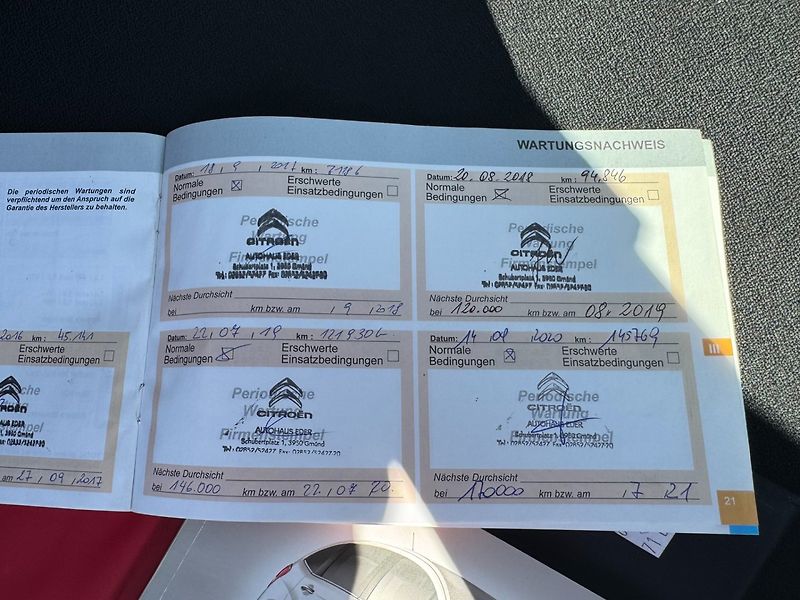 Die periodischen Wartungen sind
verpflichtend um den Anspruch auf die
Garantie des Herstellers zu behalten.
2016 km: 45.141
Erschwerte
Einsatzbedingungen
am 27, 09, 2017
WARTUNGSNACHWEIS
Datum: 18, 9, 2017 km:
Normale
Bedingungen
Erschwerte
Einsatzbedingungen
Periodische
Wartung
CITROËN
AUTOHAUS EDER
Firmenstempel
Schubertplatz 1, 3950 Gmünd
Nächste Durchsicht
bei km bzw. am , 9, 2018
Datum: 20.08.2018 km: 94.846
Normale
Bedingungen
Erschwerte
Einsatzbedingungen
Periodische
Wartung
CITROËN
AUTOHAUS EDER
Firmenstempel
Schubertplatz 1, 3950 Gmünd
Nächste Durchsicht
bei 120.000 km bzw. am 08.2019
Datum: 22, 07, 19 km: 121930
Normale
Bedingungen
Erschwerte
Einsatzbedingungen
Periodische
Wartung
CITROËN
AUTOHAUS EDER
Firmenstempel
Schubertplatz 1, 3950 Gmünd
Tel: 02852/52427 Fax: 02852/5242720
Nächste Durchsicht
bei 146.000 km bzw. am 22, 07 20.
Datum: 14, 09, 2020 km: 145769
Normale
Bedingungen
Erschwerte
Einsatzbedingungen
Periodische
Wartung
CITROËN
AUTOHAUS EDER
Firmenstempel
Schubertplatz 1, 3950 Gmünd
Nächste Durchsicht
bei 170000 km bzw. am , 7 21
III
21